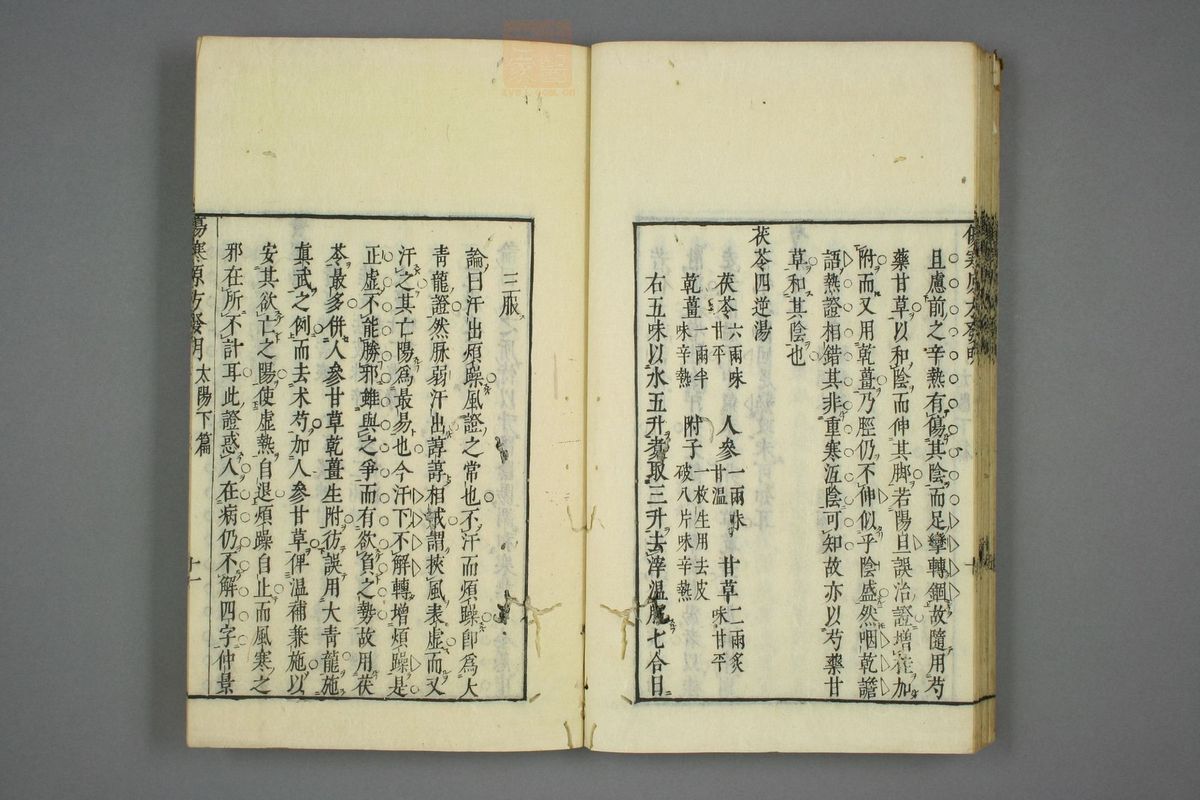 且慮前之辛熱有傷其陰而足攣轉錮故隨用芍
藥甘草以和陰而伸其脚若陽旦誤治證增桂加
附而又用乾薑乃脛仍不伸似乎陰盛然咽乾譫
語熱證相錯其非重寒沍陰可知故亦以芍藥甘
草和其陰也
茯苓四逆湯
茯苓六兩味甘平 人參一兩味甘温 甘草二兩炙味甘平
乾薑一兩半味辛熱 附子一枚生用去皮破八片味辛熱
右五味以水五升煮取三升去滓温服七合日
三服
論曰汗出煩躁風證之常也不汗而煩躁卽為大
青龍證然脉弱汗出諄諄相戒謂挾風表虛而又
汗之其亡陽爲最易也今汗下不解轉增煩躁是
正虛不能勝邪雖與之爭而有欲負之勢故用茯
苓最多併人參甘草乾薑生附彷誤用大青龍施
眞武之例而去术芍加人參甘草俾温補兼施以
安其欲亡之陽使虛熱自退煩躁自止而風寒之
邪在所不計耳此證惑人在病仍不解四字仲景
傷寒原方發明 太陽下篇 十一